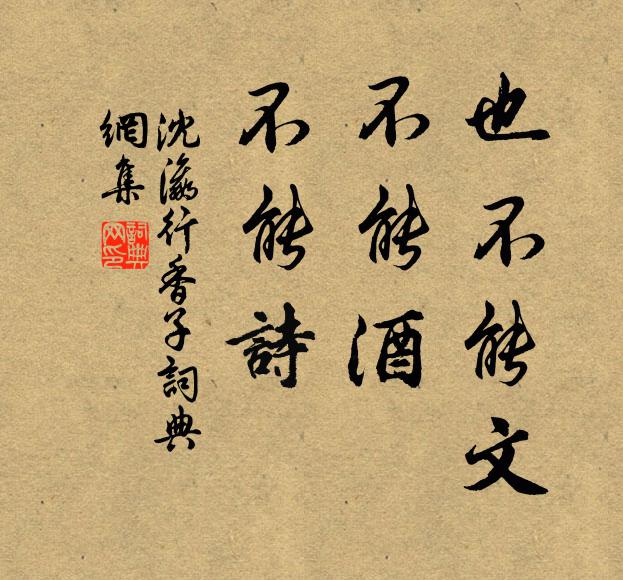 也不能文
不能酒
不能詩
沈瀛行香子詞典
網集
詞典
网印